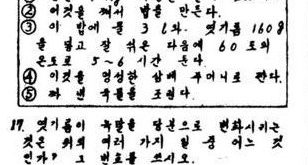 ② 이것을 쪄서 밥을 만든다.
③ 이 밥에 물 3ℓ와 엿기름 160g
을 넣고 잘 섞은 다음에 60도의
온도로 5~6시간 둔다.
④ 이것을 엉성한 삼베 주머니로 짠다.
⑤ 짜 낸 국물을 조린다.
17. 엿기름이 녹말을 당분으로 변화시키는
것은 위의 여러 가지 일 중 어느 것
인가? 그 번호를 쓰시오.